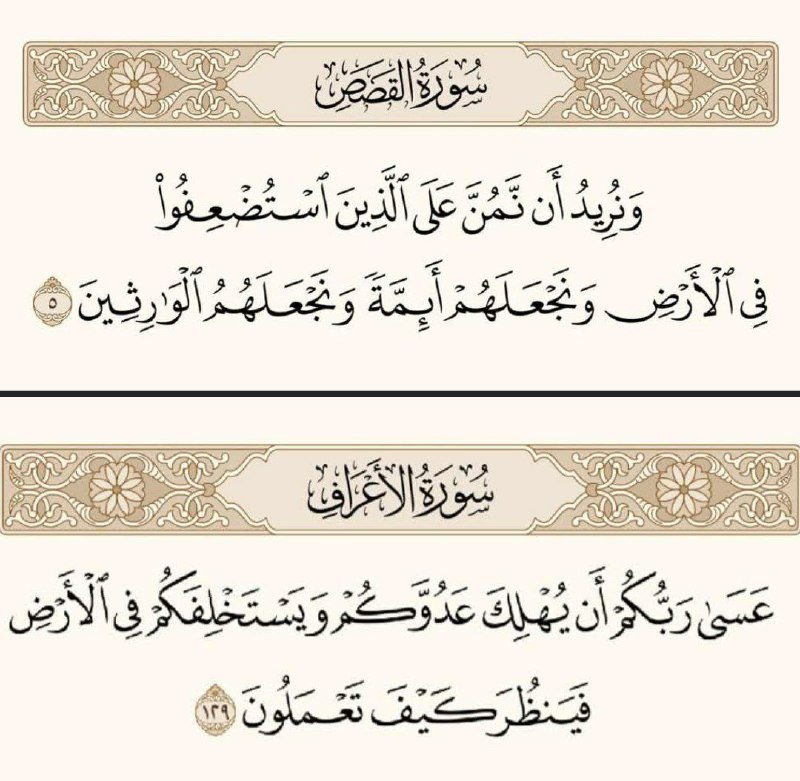 سُورَةُ القَصَصِ
وَنُرِيدُ أَن نَّمُنَّ عَلَى ٱلَّذِينَ ٱسْتُضْعِفُوا۟
فِى ٱلْأَرْضِ وَنَجْعَلَهُمْ أَئِمَّةً وَنَجْعَلَهُمُ ٱلْوَٰرِثِينَ ٥
سُورَةُ الأَعْرَافِ
عَسَىٰ رَبُّكُمْ أَن يُهْلِكَ عَدُوَّكُمْ وَيَسْتَخْلِفَكُمْ فِى ٱلْأَرْضِ
فَيَنظُرَ كَيْفَ تَعْمَلُونَ ١٢٩